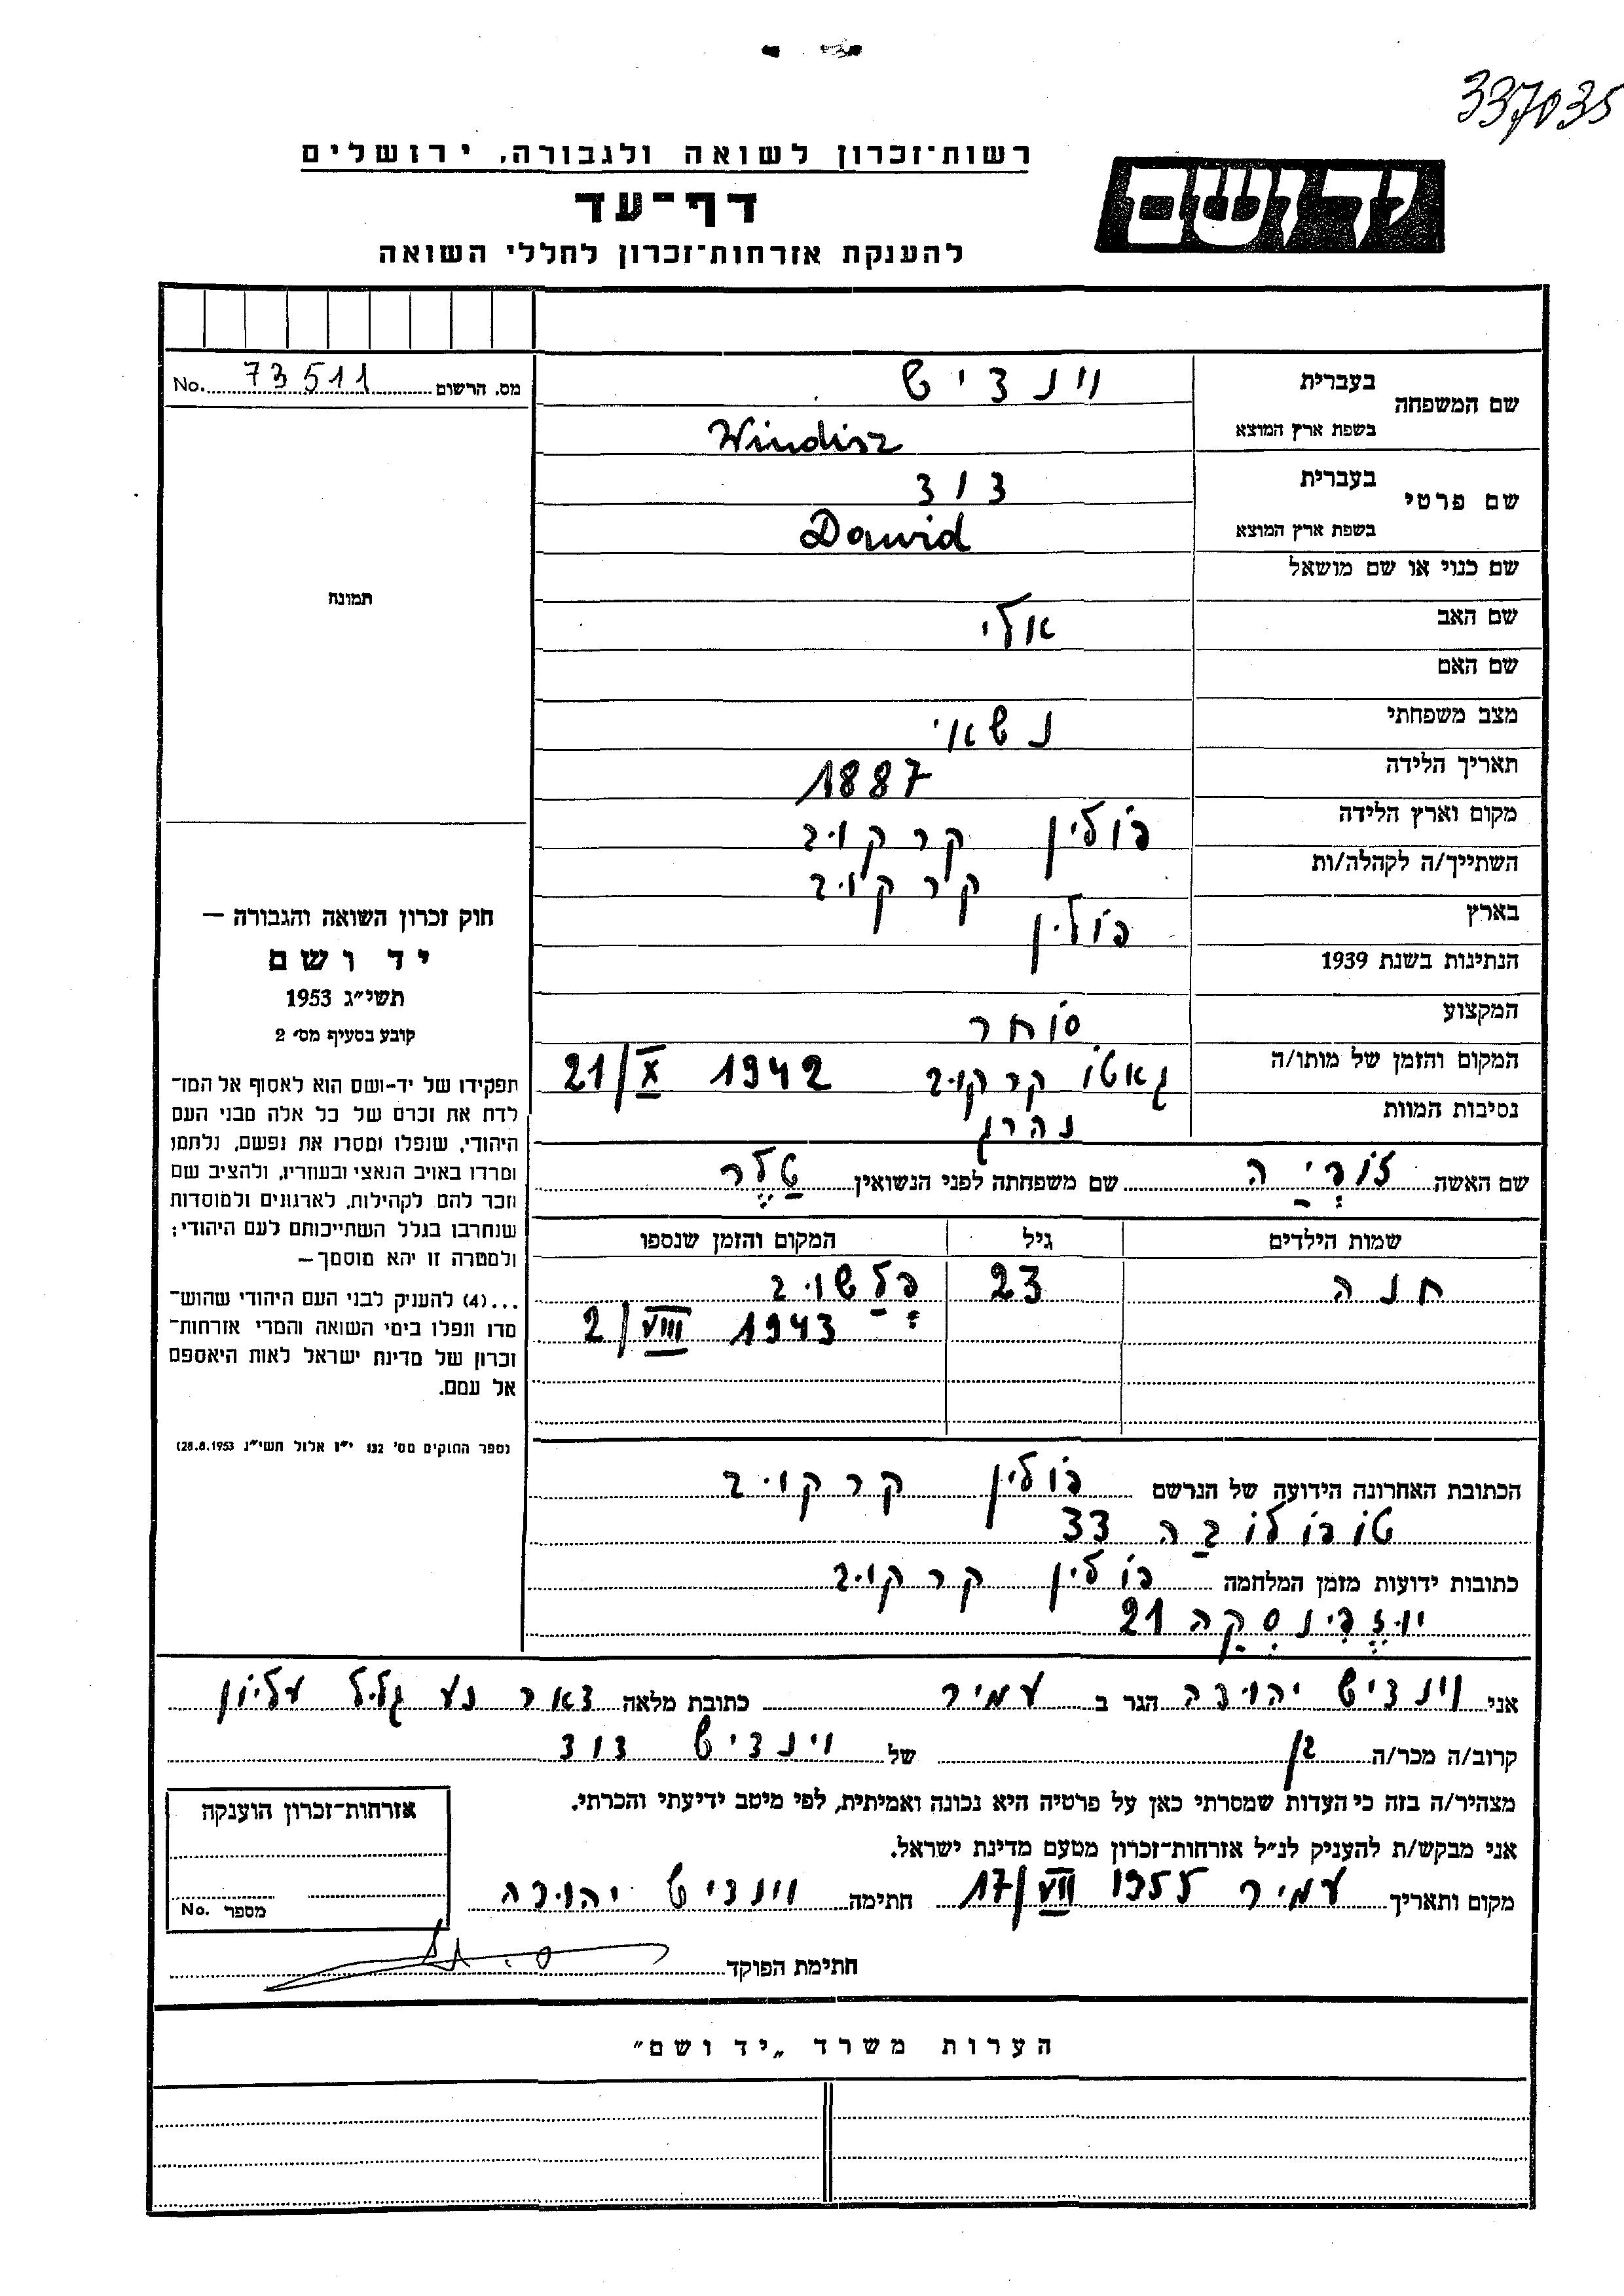 337035
יד ושם
רשות־זכרון לשואה ולגבורה, ירושלים
דף־עד
להענקת אזרחות־זכרון לחללי השואה
מס. הרשום 73511 No.
שם המשפחה
בעברית וינדיש
בשפת ארץ המוצא Windisz
שם פרטי
בעברית דוד
בשפת ארץ המוצא Dawid
שם כנוי או שם מושאל
שם האב אלי
שם האם
מצב משפחתי נשאוי
תאריך הלידה 1887
מקום וארץ הלידה פולין קרקוב
השתייך/ה לקהלה/ות קרקוב
בארץ פולין
הנתינות בשנת 1939
המקצוע סוחר
המקום והזמן של מותו/ה גאטו קרקוב 1942 21/X
נסיבות המוות נהרג
שם האשה זופיה שם משפחתה לפני הנשואין טלר
שמות הילדים גיל המקום והזמן שנספו
חנה 23 פלשוב
2/VIII 1943
הכתובת האחרונה הידועה של הנרשם פולין קרקוב
טופולובה 33
כתובות ידועות מזמן המלחמה פולין קרקוב
יוזפינסקה 21
תמונה
חוק זכרון השואה והגבורה —
יד ושם
תשי״ג 1953
קובע בסעיף מס׳ 2
תפקידו של יד־ושם הוא לאסוף אל המו־
לדת את זכרם של כל אלה מבני העם
היהודי, שנפלו ומסרו את נפשם, נלחמו
ומרדו באויב הנאצי ובעוזריו, ולהציב שם
וזכר להם לקהילות, לארגונים ולמוסדות
שנחרבו בגלל השתייכותם לעם היהודי;
ולמטרה זו יהא מוסמך —
...(4) להעניק לבני העם היהודי שהוש־
מדו ונפלו בימי השואה והמרי אזרחות־
זכרון של מדינת ישראל לאות היאספם
אל עמם.
(ספר החוקים מס׳ 132 י״ז אלול תשי״ג 28.8.1953)
אני וינדיש יהודה הגר ב עמיר כתובת מלאה דאר נע גליל עליון
קרוב/ה מכר/ה בן של וינדיש דוד
מצהיר/ה בזה כי העדות שמסרתי כאן על פרטיה היא נכונה ואמיתית, לפי מיטב ידיעתי והכרתי.
אני מבקש/ת להעניק לנ״ל אזרחות־זכרון מטעם מדינת ישראל.
מקום ותאריך עמיר 17/VII 1955 חתימה וינדיש יהודה
חתימת הפוקד
אזרחות־זכרון הוענקה
מספר No.
הערות משרד „יד ושם״